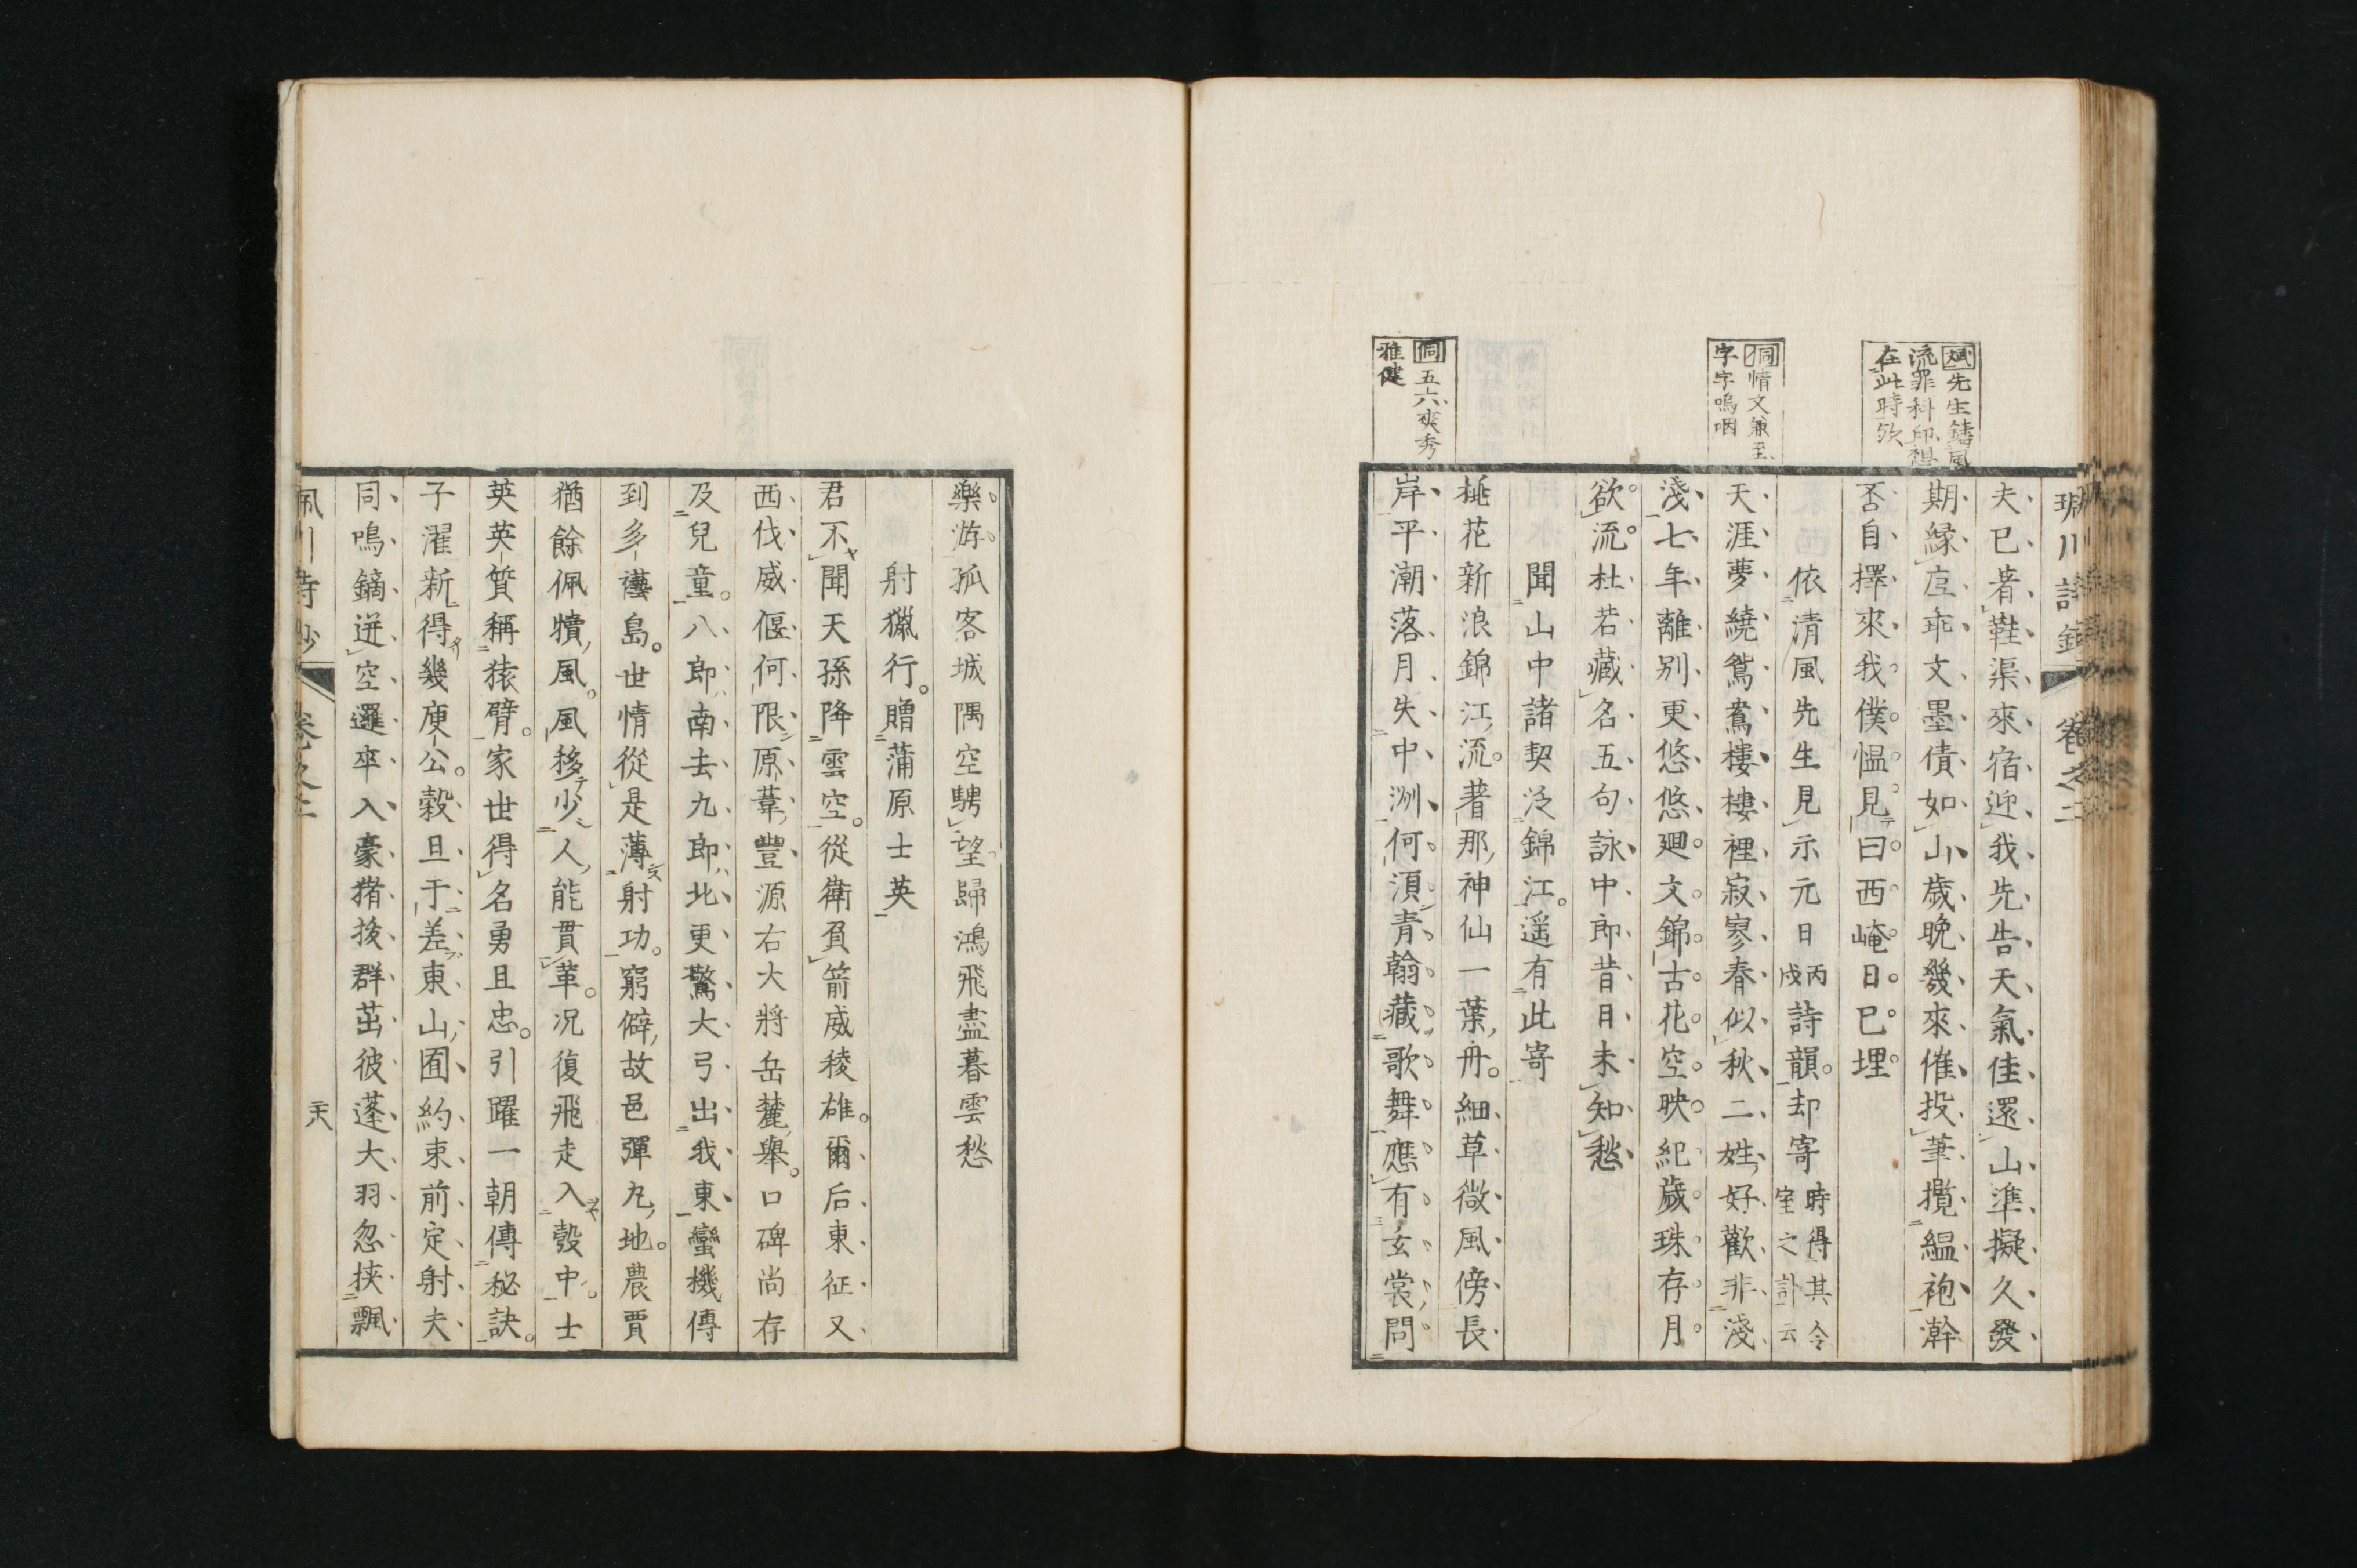 斌先生鑄風
流罪科印想
在此時欤
侗情文兼至
字字嗚咽
侗五六爽秀
雅健
夫已著鞋渠來宿迎我先告天氣佳還山準擬久發
期緣底乖文墨債如山歳晩幾來催投筆攬縕袍澣
否自擇來我僕慍見曰西崦日已埋
依清風先生見示元日丙戌詩韻却寄時得其令室之訃云
天涯夢繞鴛鴦樓樓裡寂寥春似秋二姓好歡非淺
淺七年離別更悠悠廻文錦古花空映紀歲珠存月
欲流杜若藏名五句詠中郎昔日未知愁
聞山中諸契泛錦江遥有此寄
桃花新浪錦江流著那神仙一葉舟細草微風傍長
岸平潮落月失中洲何須青翰藏歌舞應有玄裳問
樂游孤客城隅空騁望歸鴻飛盡暮雲愁
射獵行贈蒲原士英
君不聞天孫降雲空從衛負箭威稜雄爾后東征又
西伐威偃何限原葦豐源右大將岳麓舉口碑尚存
及兒童八郎南去九郎北更驚大弓出我東蠻機傳
到多褹島世情從是薄射功窮僻故邑彈丸地農賈
猶餘佩犢風風移少人能貫革况復飛走入彀中士
英英質稱猿臂家世得名勇且忠引躍一朝傳秘訣
子濯新得幾庾公穀旦于差東山囿約束前定射夫
同鳴鏑迸空邏卒入豪豬挨群茁彼蓬大羽忽挾飄
卷之二